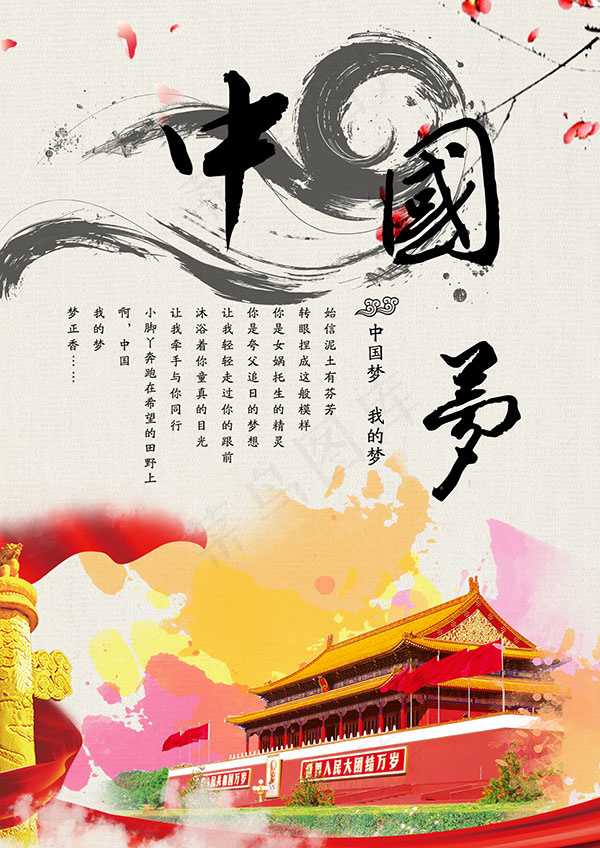 中國
夢
中国梦 我的梦
始信泥土有芬芳
转眼捏成这般模样
你是女娲托生的精灵
你是夸父追日的梦想
让我轻轻走过你的跟前
沐浴着你童真的目光
让我牵手与你同行
小脚丫奔跑在希望的田野上
啊，中国
我的梦
梦正香……
世界人民大团结万岁